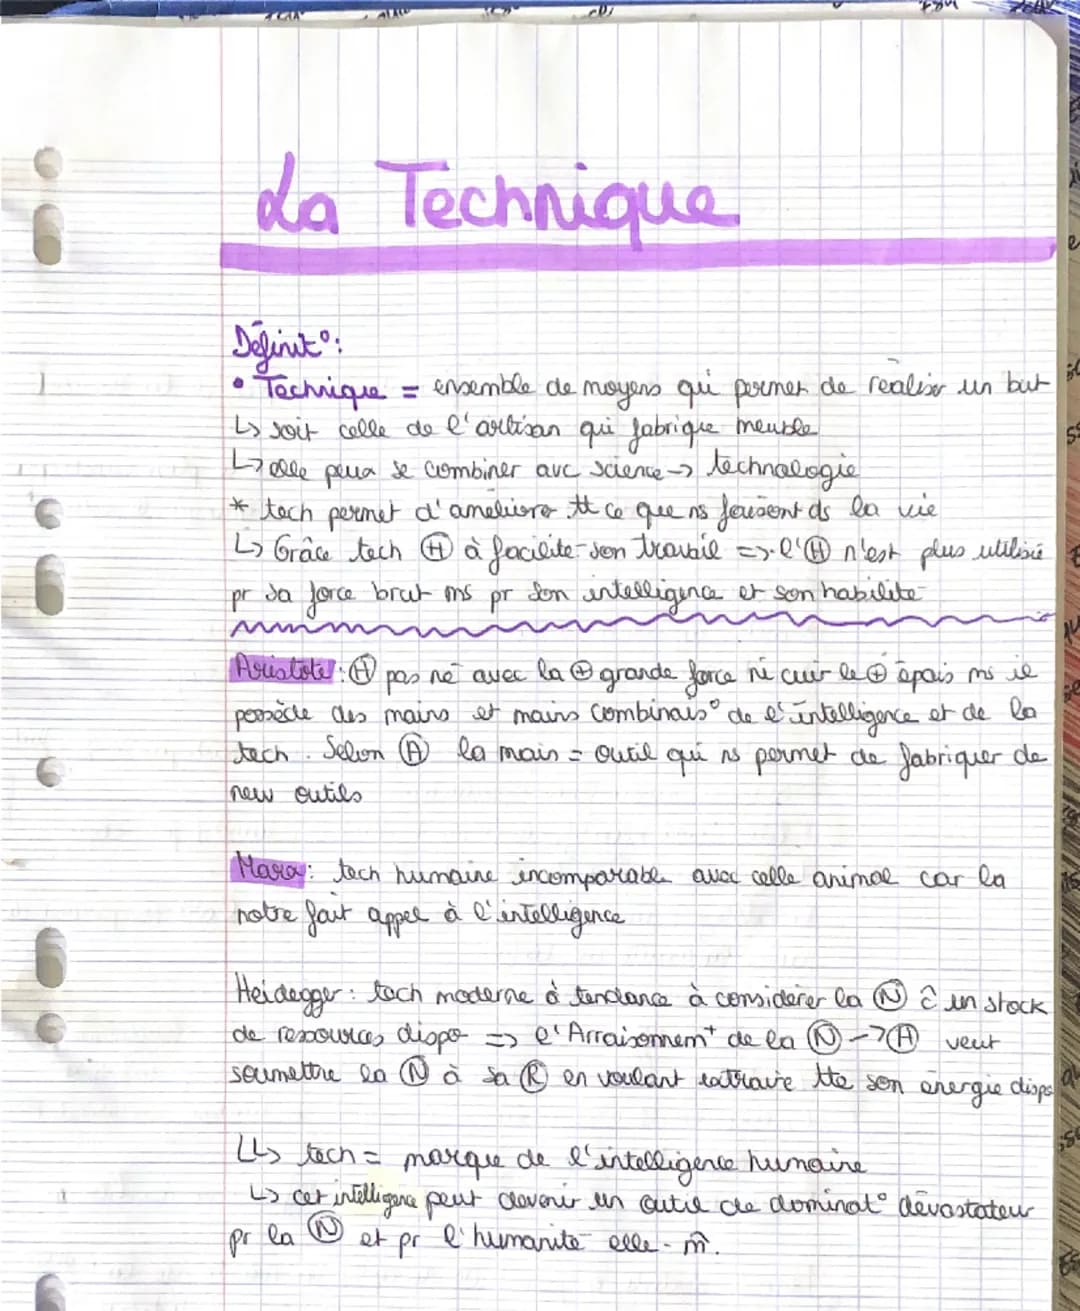 La Technique
Définit°:
• Technique = ensemble de moyens qui permet de réaliser un but
↳ soit celle de l'artisan qui fabrique meuble
↳ elle peux se combiner avc science → technologie
* tech permet d'améliorer tt ce que ns faisont ds la vie
↳ Grâce tech Ⓗ à facilité son travail => l'Ⓗ n'est plus utilisé
pr sa force brut ms pr son intelligence et son habilité
Aristote : Ⓗ pas né avec la ⊕ grande force ni cuir le ⊕ épais ms il
possède des mains et mains combinais° de l'intelligence et de la
tech. Selon Ⓐ la main = outil qui ns permet de fabriquer de
new outils
Marx : tech humaine incomparable avec celle animal car la
notre fait appel à l'intelligence
Heidegger : tech moderne à tendance à considérer la Ⓝ ĉ un stock
de ressources dispo => l'Arraisonnemt de la Ⓝ → Ⓗ veut
soumettre la Ⓝ à sa Ⓡ en voulant extraire tte son énergie dispo
↳ tech = marque de l'intelligence humaine
↳ cet intelligence peut devenir un outil de dominat° dévastateur
pr la Ⓝ et pr l'humanité elle-m̂.